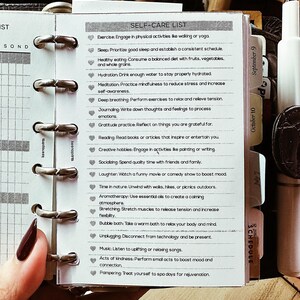 SELF-CARE LIST
Exercise: Engage in physical activities like walking or yoga.
Sleep: Prioritize good sleep and establish a consistent schedule.
Healthy eating: Consume a balanced diet with fruits, vegetables,
and whole grains.
Hydration: Drink enough water to stay properly hydrated.
Meditation: Practice mindfulness to reduce stress and increase
self-awareness.
Deep breathing: Perform exercises to relax and relieve tension.
Journaling: Write down thoughts and feelings to process
emotions.
Gratitude practice: Reflect on things you are grateful for.
Reading: Read books or articles that inspire or entertain you.
Creative hobbies: Engage in activities like painting or writing.
Socializing: Spend quality time with friends and family.
Laughter: Watch a funny movie or comedy show to boost mood.
Time in nature: Unwind with walks, hikes, or picnics outdoors.
Aromatherapy: Use essential oils to create a calming
atmosphere.
Stretching: Stretch muscles to release tension and increase
flexibility.
Bubble bath: Take a warm bath to relax your body and mind.
Unplugging: Disconnect from technology and be present.
Music: Listen to uplifting or relaxing songs.
Acts of kindness: Perform small acts to boost mood and
connection.
Pampering: Treat yourself to spa days for rejuvenation.
September 9
October 10